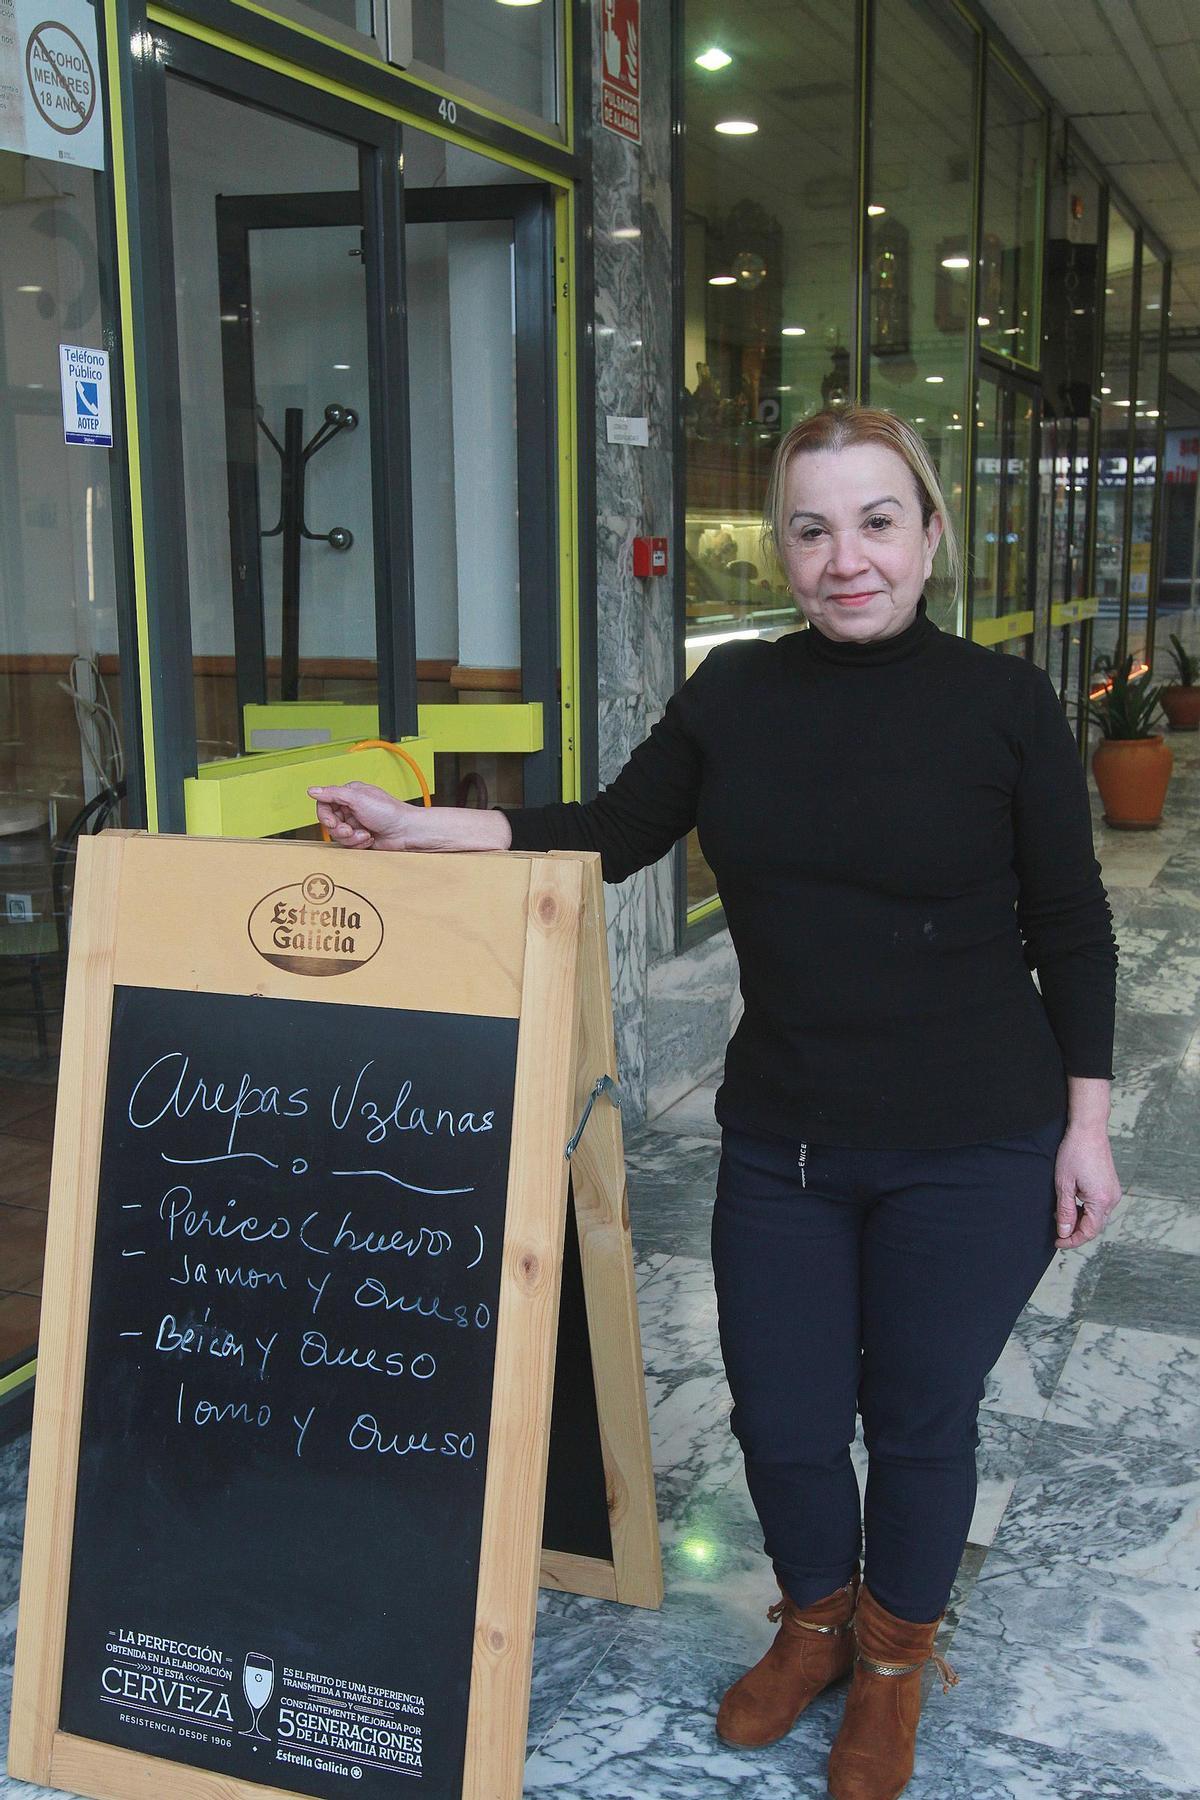 ALCOHOL
MENORES
18 AÑOS
40
PULSADOR
DE ALARMA
Teléfono
Público
AOTEP
Estrella
Galicia
Arepas Vzlanas
- Perico (huevos)
- Jamon y Queso
- Beicon y Queso
lomo y Queso
- LA PERFECCIÓN -
OBTENIDA EN LA ELABORACIÓN
>>>> DE ESTA <<<<
CERVEZA
RESISTENCIA DESDE 1906
ES EL FRUTO DE UNA EXPERIENCIA
TRANSMITIDA A TRAVÉS DE LOS AÑOS
Y
CONSTANTEMENTE MEJORADA POR
5 GENERACIONES
DE LA FAMILIA RIVERA
Estrella Galicia
ENICE